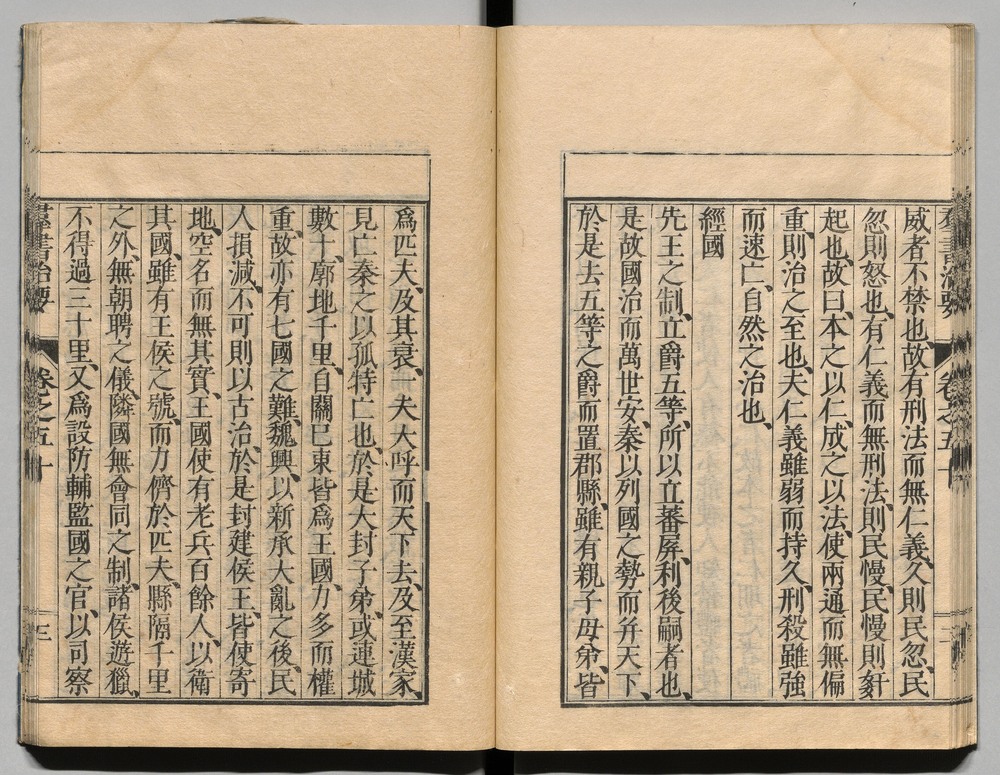 羣書治要 卷之五十 二
威者不禁也、故有刑法而無仁義、久則民忽、民
忽則怒也、有仁義而無刑法、則民慢、民慢則姧
起也、故曰、本之以仁、成之以法、使兩通而無偏
重、則治之至也、夫仁義雖弱而持久、刑殺雖強
而速亡、自然之治也、
經國
先王之制、立爵五等、所以立蕃屏、利後嗣者也、
是故國治而萬世安、秦以列國之勢而并天下、
於是去五等之爵而置郡縣、雖有親子母弟、皆
爲匹夫、及其衰、一夫大呼而天下去、及至漢家、
見亡秦之以孤特亡也、於是大封子弟、或連城
數十、廓地千里、自關已東皆爲王國、力多而權
重、故亦有七國之難、魏興、以新承大亂之後、民
人損減、不可則以古治、於是封建侯王、皆使寄
地、空名而無其實、王國使有老兵百餘人、以衛
其國、雖有王侯之號、而力儕於匹夫、縣隔千里
之外、無朝聘之儀、隣國無會同之制、諸侯遊獵、
不得過三十里、又爲設防輔監國之官、以司察
羣書治要 卷之五十 三